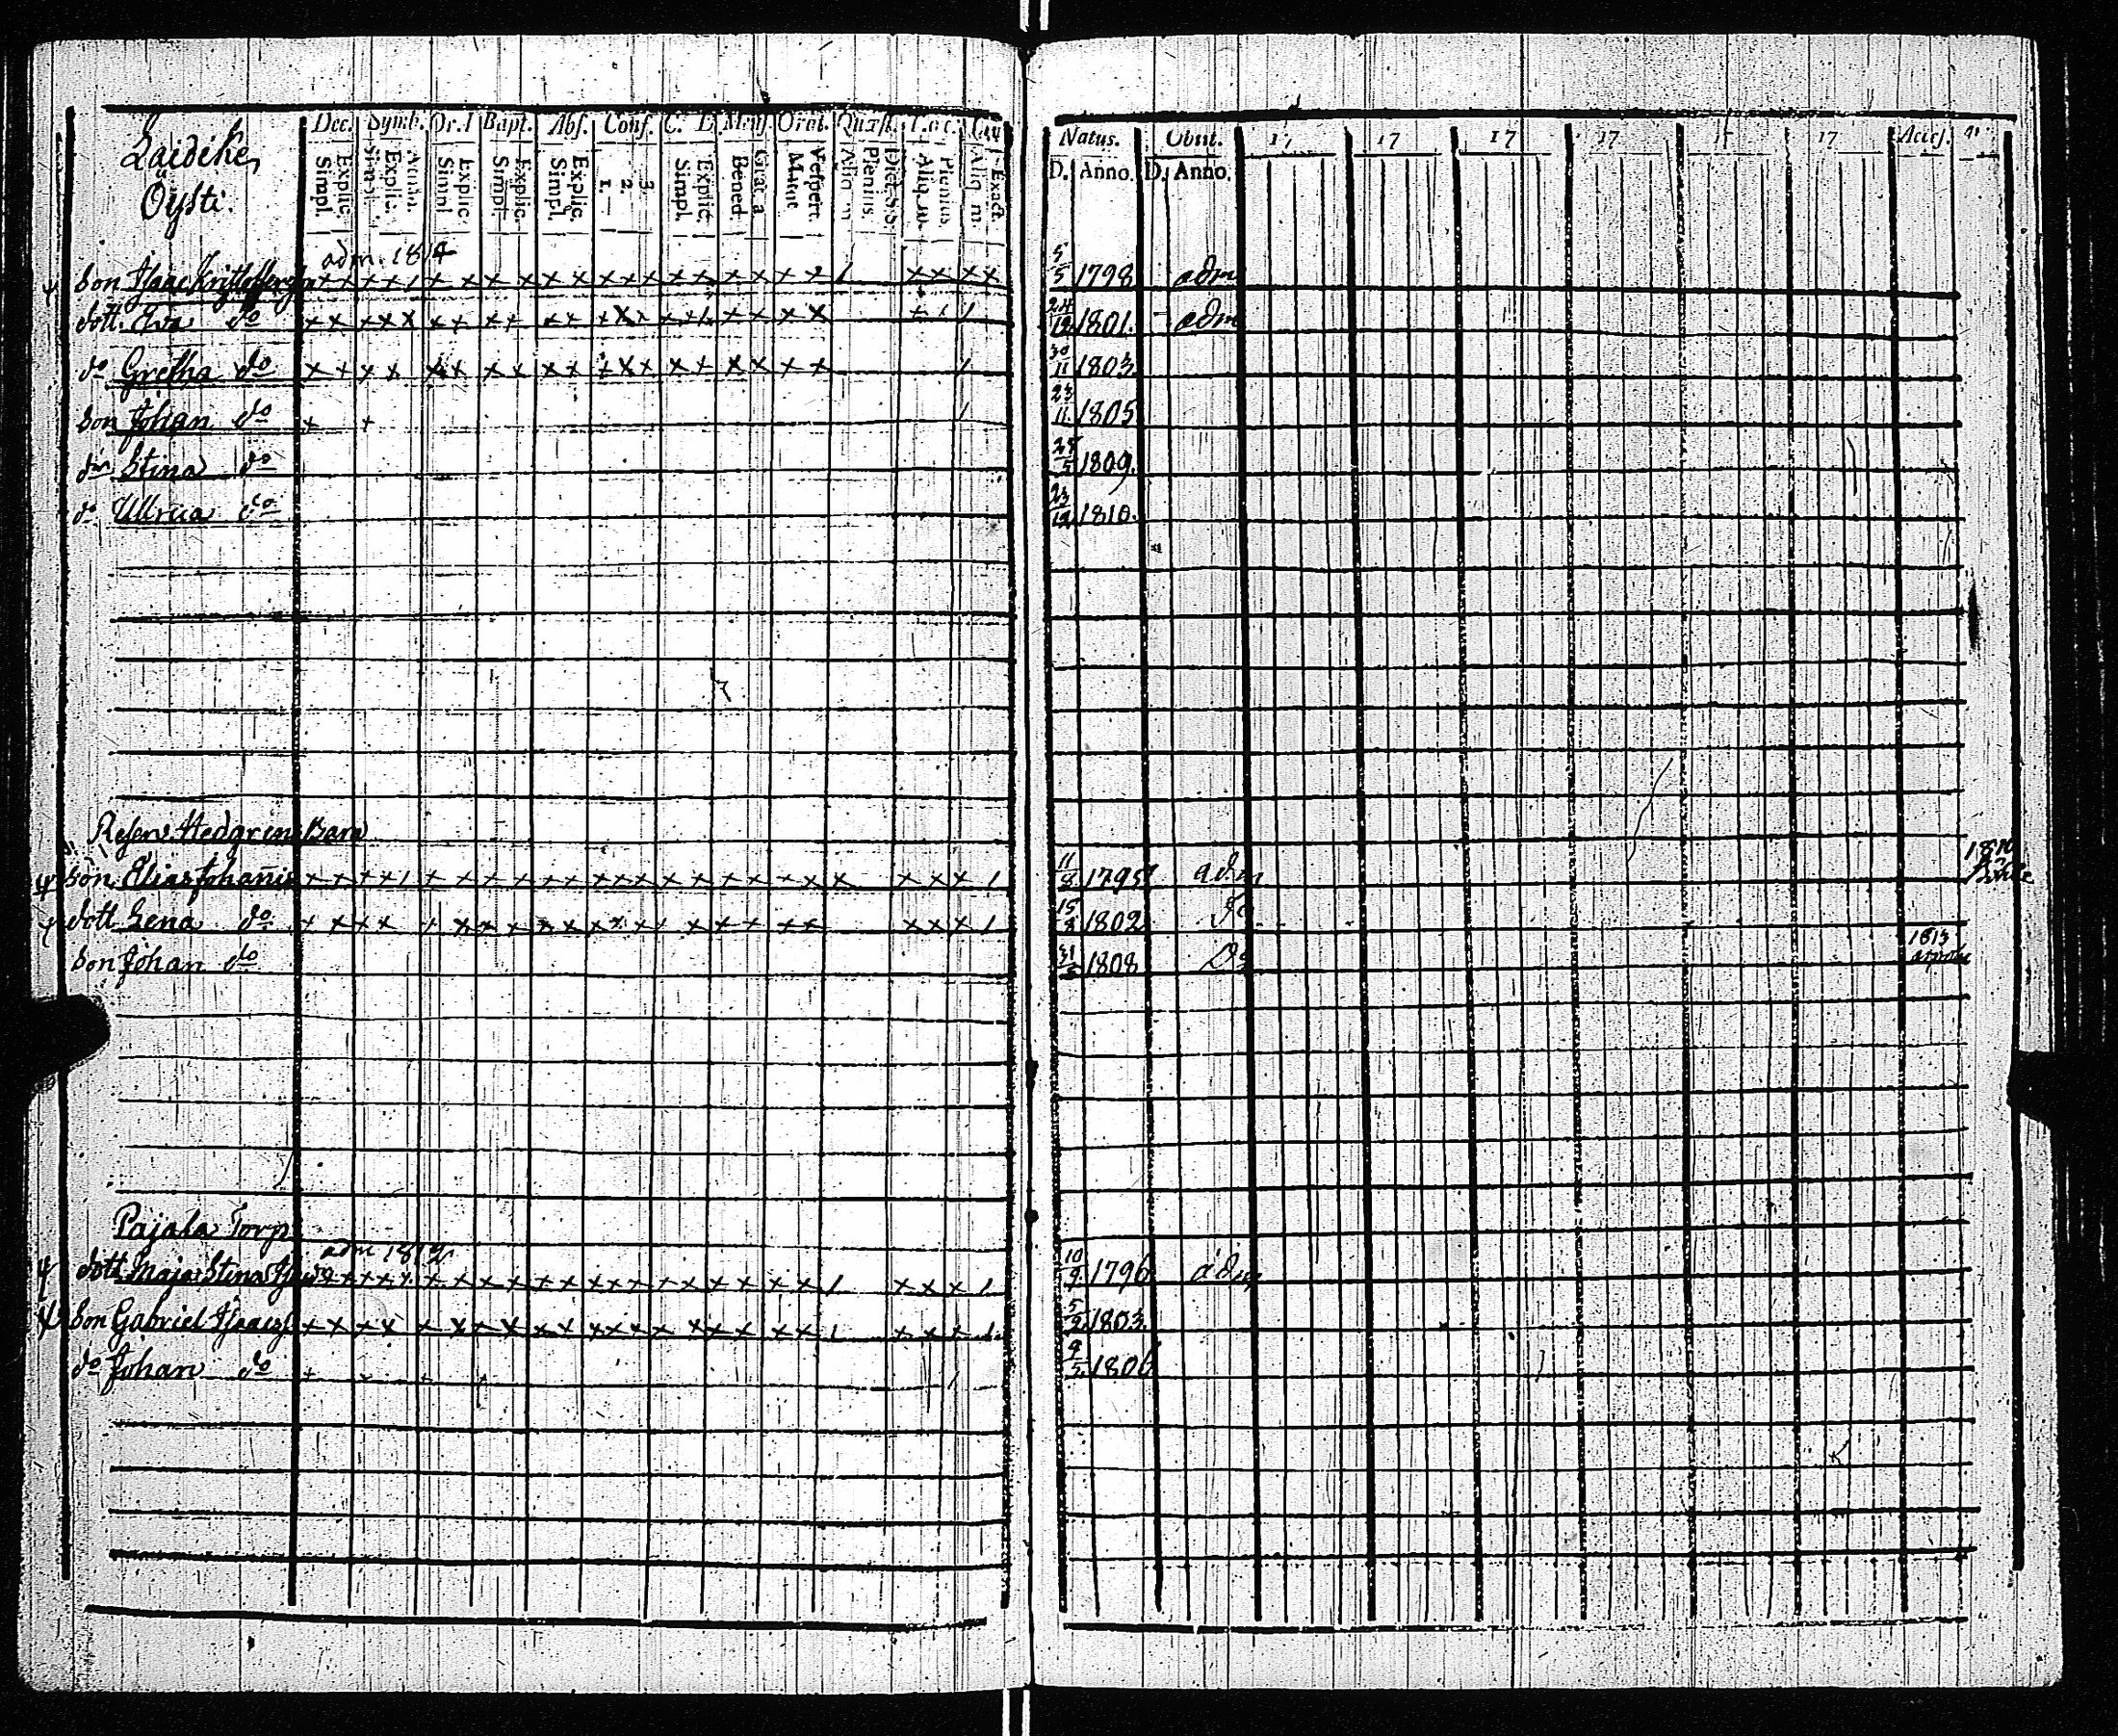 Laidike
Öysti.
Dec. Symb. Or. Bapt. Abs. Conf. C. D Mens. Orat. Quæst. Loc.
Simpl. Explic. Simpl. Explic. Athan. Simpl. Explic. Simpl. Explic. Simpl. Explic. 1. 2. 3. Simpl. Explic. Bened. Grat. a Matut. Vespert. Plenius. Plenius. Exact.
Natus. Obiit. 17 17 17 17 17 17 Acces.
D. Anno. D. Anno.
adm. 1814
Son Isaac Kristoffersson 5/5 1798 adm
dott. Eva do 24/12 1801. adm
do Gretha do 30/11 1803
Son Johan do 23/11 1805
Stina do 1809.
do Ullrica do 23/12 1810.
Reserv. Hedgrens Barn
1810
Son Elias Johannis 11/8 1795 adm
dott Lena do 15/8 1802
1813
Son Johan do 1808
Pajala Torp
adm 1812
dott. Maja Stina 10/9 1796 adm
Son Gabriel Isacs 1803.
do Johan do 1806